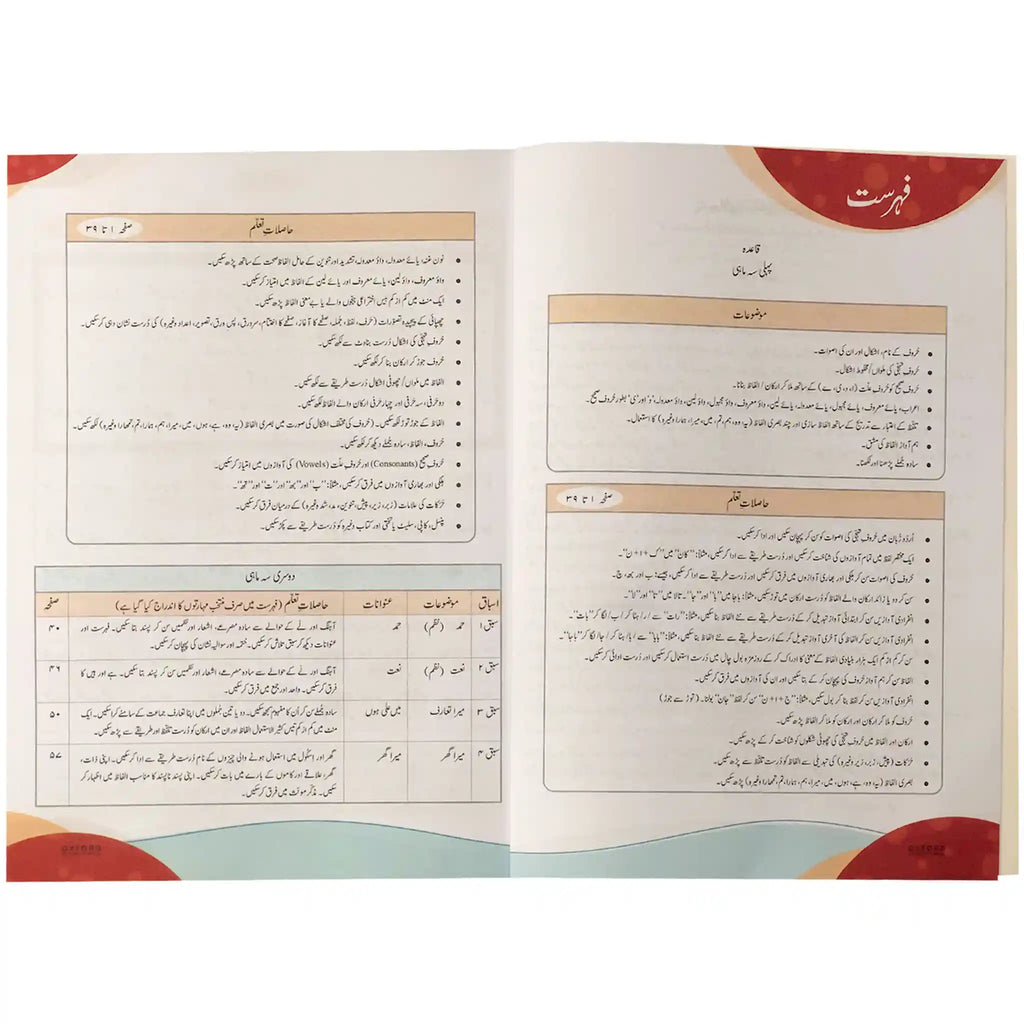 فہرست
قاعدہ
پہلی سہ ماہی
موضوعات
حروف کے نام، اشکال اور ان کی اصوات۔
حروفِ تہجی کی ملواں/مخلوط اشکال۔
حروفِ صحیح کو حروفِ علّت (ا، و، ی، ے) کے ساتھ ملا کر ارکان/الفاظ بنانا۔
اعراب، یائے معروف، یائے مجہول، یائے معدولہ، یائے لین، واؤ معروف، واؤ مجہول، واؤ لین، واؤ معدولہ، 'و' اور 'ی' بطور حروفِ صحیح۔
تلفظ کے اعتبار سے تدریج کے ساتھ الفاظ سازی اور چند بصری الفاظ (یہ، وہ، ہم، تم، میں، میرا، ہمارا وغیرہ) کا استعمال۔
ہم آواز الفاظ کی مشق۔
سادہ جملے پڑھنا اور لکھنا۔
حاصلاتِ تعلّم صفحہ ۱ تا ۳۹
اُردو زبان میں حروفِ تہجی کی اصوات کو سن کر پہچان سکیں اور ادا کر سکیں۔
ایک مختصر لفظ میں تمام آوازوں کی شناخت کر سکیں اور دُرست طریقے سے ادا کر سکیں، مثلاً: "کان" میں "ک + ا + ن"۔
حروف کی اصوات سن کر ہلکی اور بھاری آوازوں میں فرق کر سکیں اور دُرست طریقے سے ادا کر سکیں، جیسے: ب اور بھ، چ۔
سن کر دو یا زائد ارکان والے الفاظ کو دُرست ارکان میں توڑ سکیں، مثلاً: باجا میں "با" اور "جا"۔ تالا میں "تا" اور "لا"۔
انفرادی آوازیں سن کر ابتدائی آواز تبدیل کر کے دُرست طریقے سے نئے الفاظ بنا سکیں، مثلاً: "رات" سے /ر/ ہٹا کر /ب/ لگا کر "بات"۔
انفرادی آوازیں سن کر الفاظ کی آخری آواز تبدیل کر کے دُرست طریقے سے نئے الفاظ بنا سکیں، مثلاً: "بابا" سے /با/ ہٹا کر /جا/ لگا کر "باجا"۔
سن کر کم از کم ایک ہزار بنیادی الفاظ کے معنی کا ادراک کر کے روزمرّہ بول چال میں دُرست استعمال کر سکیں اور دُرست ادائی کر سکیں۔
الفاظ سن کر ہم آواز حروف کی پہچان کر کے بتا سکیں اور ان کی آوازوں میں فرق کر سکیں۔
انفرادی آوازیں سن کر لفظ بنا کر بول سکیں، مثلاً: "ج + ا + ن" سن کر لفظ "جان" بولنا۔ (توڑ سے جوڑ)
حروف کو ملا کر ارکان اور ارکان کو ملا کر الفاظ پڑھ سکیں۔
ارکان اور الفاظ میں حروفِ تہجی کی چھوٹی شکلوں کو شناخت کر کے پڑھ سکیں۔
حرکات (پیش، زبر، زیر وغیرہ) کی تبدیلی سے الفاظ کو دُرست تلفظ سے پڑھ سکیں۔
بصری الفاظ (یہ، وہ، ہے، ہوں، میں، میرا، ہم، ہمارا، تم، تمھارا وغیرہ) پڑھ سکیں۔
OXFORD
حاصلاتِ تعلّم صفحہ ۱ تا ۳۹
نون غنہ، یائے معدولہ، واؤ معدولہ، تشدید اور تنوین کے حامل الفاظ صحت کے ساتھ پڑھ سکیں۔
واؤ معروف، واؤ لین، یائے معروف اور یائے لین کے الفاظ میں امتیاز کر سکیں۔
ایک منٹ میں کم از کم بیس اختراعی ہجّوں والے یا بے معنی الفاظ پڑھ سکیں۔
چھپائی کے پیچیدہ تصوّرات (حرف، لفظ، جملہ، صفحے کا آغاز، صفحے کا اختتام، سرِورق، پس ورق، تصویر، اعداد وغیرہ) کی دُرست نشان دہی کر سکیں۔
حروفِ تہجی کی اشکال دُرست بناوٹ سے لکھ سکیں۔
حروف جوڑ کر ارکان بنا کر لکھ سکیں۔
الفاظ میں ملواں/چھوٹی اشکال دُرست طریقے سے لکھ سکیں۔
دو حرفی، سہ حرفی اور چہار حرفی ارکان والے الفاظ لکھ سکیں۔
الفاظ کے جوڑ توڑ لکھ سکیں۔ (حروف کی مختلف اشکال کی صورت میں بصری الفاظ (یہ، وہ، ہے، ہوں، میں، میرا، ہم، ہمارا، تم، تمھارا وغیرہ) لکھ سکیں۔
حروف، الفاظ، سادہ جملے دیکھ کر لکھ سکیں۔
حروفِ صحیح (Consonants) اور حروفِ علّت (Vowels) کی آوازوں میں امتیاز کر سکیں۔
ہلکی اور بھاری آوازوں میں فرق کر سکیں، مثلاً: "ب" اور "بھ" اور "ت" اور "تھ"۔
حرکات کی علامات (زبر، زیر، پیش، تنوین، مد، شد وغیرہ) کے درمیان فرق کر سکیں۔
پنسل، کاپی، سلیٹ یا تختی اور کتاب وغیرہ کو دُرست طریقے سے پکڑ سکیں۔
دوسری سہ ماہی
اسباق موضوعات عنوانات حاصلاتِ تعلّم (فہرست میں صرف منتخب مہارتوں کا اندراج کیا گیا ہے) صفحہ
سبق ۱ حمد (نظم) حمد آہنگ اور لے کے حوالے سے سادہ مصرعے، اشعار اور نظمیں سن کر پسند بتا سکیں۔ فہرست اور ۴۰
عنوانات دیکھ کر سبق تلاش کر سکیں۔ ختمہ اور سوالیہ نشان کی پہچان کر سکیں۔
سبق ۲ نعت (نظم) نعت آہنگ اور لے کے حوالے سے سادہ مصرعے، اشعار اور نظمیں سن کر پسند بتا سکیں۔ ہے اور ہیں کا ۴۶
فرق کر سکیں۔ واحد اور جمع میں فرق کر سکیں۔
سبق ۳ میرا تعارف میں علی ہوں سادہ جملے سن کر اُن کا مفہوم سمجھ سکیں۔ دو یا تین جملوں میں اپنا تعارف جماعت کے سامنے کرا سکیں۔ ایک ۵۰
منٹ میں کم از کم تیس کثیر الاستعمال الفاظ اور ان میں ارکان کو دُرست تلفظ اور طریقے سے پڑھ سکیں۔
سبق ۴ میرا گھر میرا گھر گھر اور اسکول میں استعمال ہونے والی چیزوں کے نام دُرست طریقے سے ادا کر سکیں۔ اپنی ذات، ۵۷
گھر، علاقے اور کاموں کے بارے میں بات کر سکیں۔ اپنی پسند ناپسند کا مناسب الفاظ میں اظہار کر
سکیں۔ مذکر مونث میں فرق کر سکیں۔
OXFORD